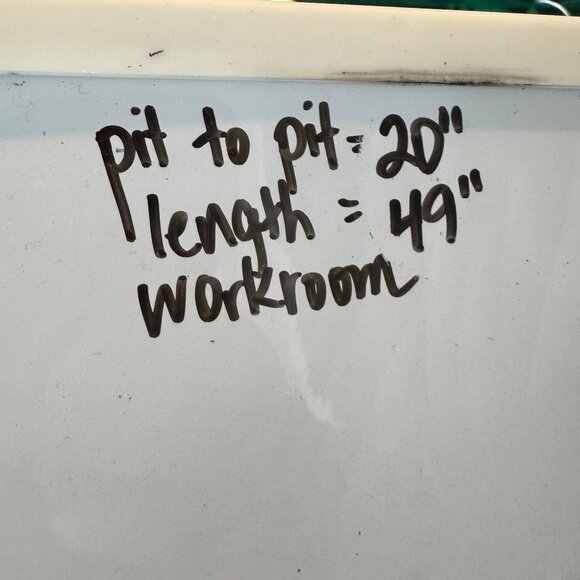 pit to pit = 20"
length = 49"
workroom